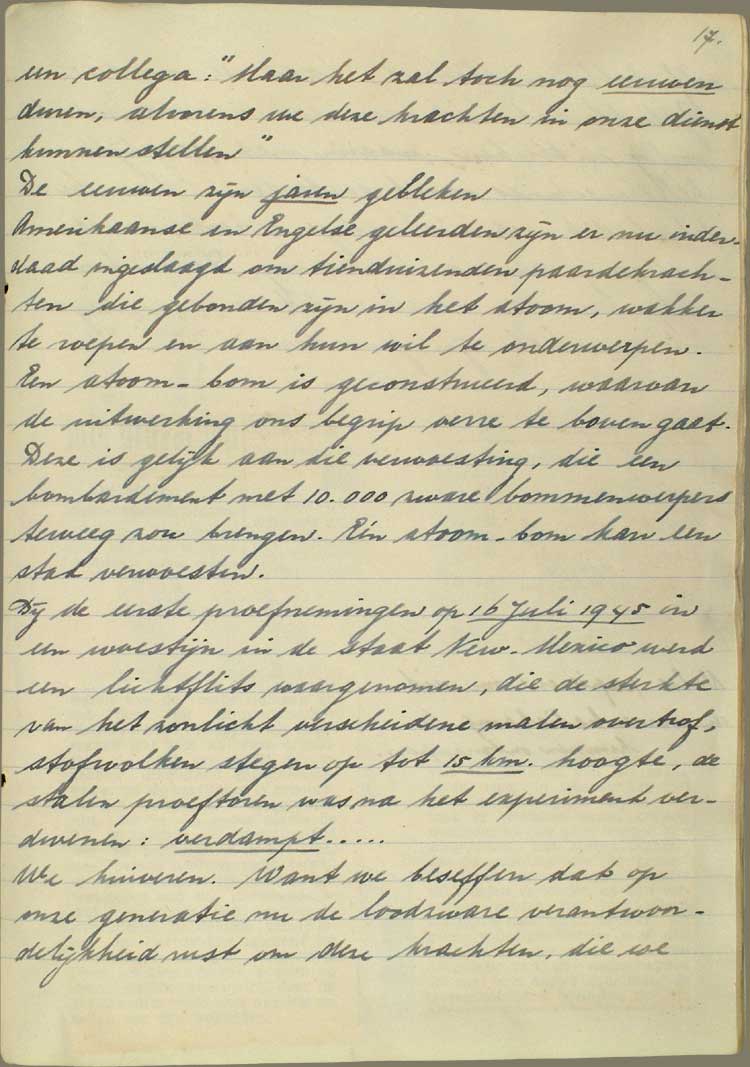 17.
een collega: "Maar het zal toch nog eeuwen
duren, alvorens we deze krachten in onze dienst
kunnen stellen"
De eeuwen zijn jaren gebleken
Amerikaanse en Engelse geleerden zijn er nu inder-
daad ingeslaagd om tienduizenden paardekrach-
ten die gebonden zijn in het atoom, wakker
te roepen en aan hun wil te onderwerpen.
Een atoom-bom is geconstrueerd, waarvan
de uitwerking ons begrip verre te boven gaat.
Deze is gelijk aan die verwoesting, die een
bombardement met 10.000 zware bommenwerpers
teweeg zou brengen. Eén atoom-bom kan een
stad verwoesten.
Bij de eerste proefnemingen op 16 Juli 1945 in
een woestijn in de staat New-Mexico werd
een lichtflits waargenomen, die de sterkte
van het zonlicht verscheidene malen overtrof,
stofwolken stegen op tot 15 km. hoogte, de
stalen proeftoren was na het experiment ver-
dwenen: verdampt.....
We huiveren. Want we beseffen dat op
onze generatie nu de loodzware verantwoor-
delijkheid rust om deze krachten, die we